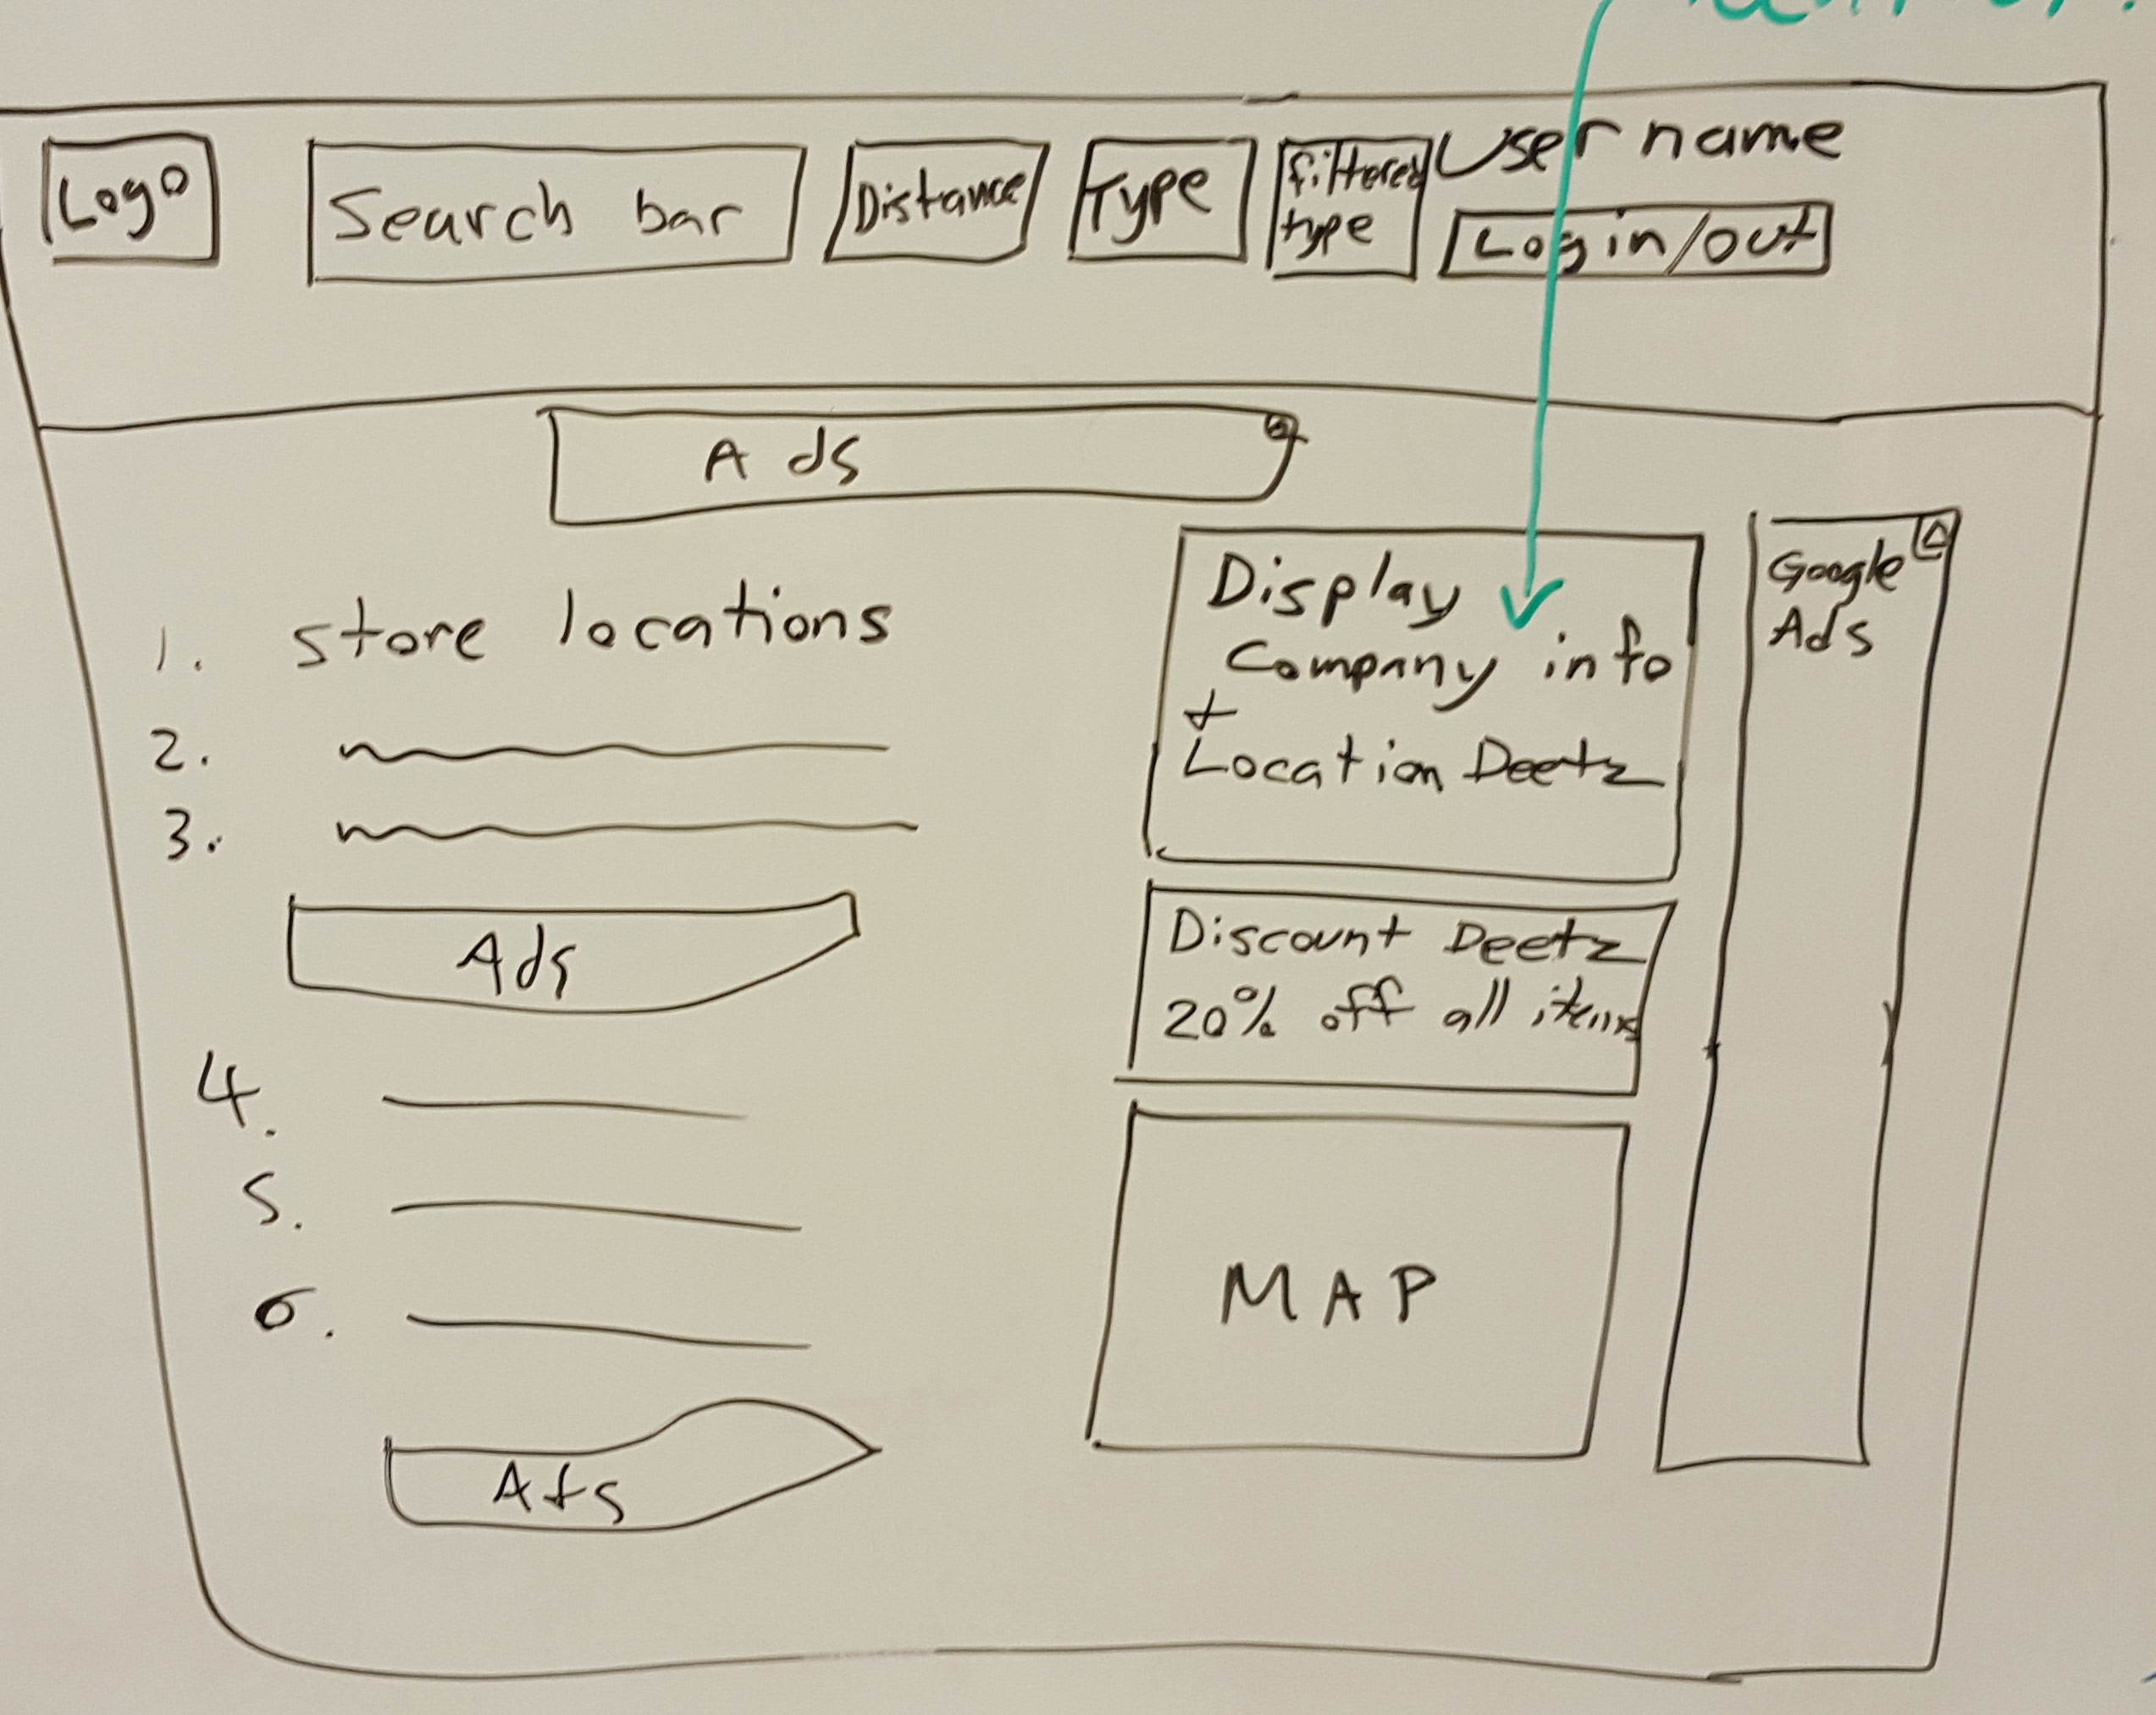 Logo
Search bar
Distance
Type
filtered
type
User name
Log in/out
Ads
1. store locations
2.
3.
Ads
4.
5.
6.
Ads
Display
Company info
+
Location Deetz
Discount Deetz
20% off all items
MAP
Google
Ads